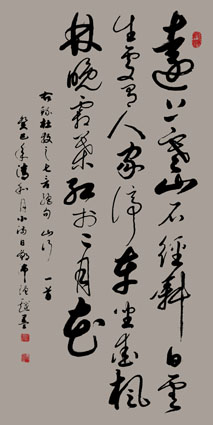 遠上寒山石徑斜白雲
生處有人家停車坐愛楓
林晚霜葉紅於二月花
右錄杜牧之七言絕句山行一首
癸巳年清和月小滿日